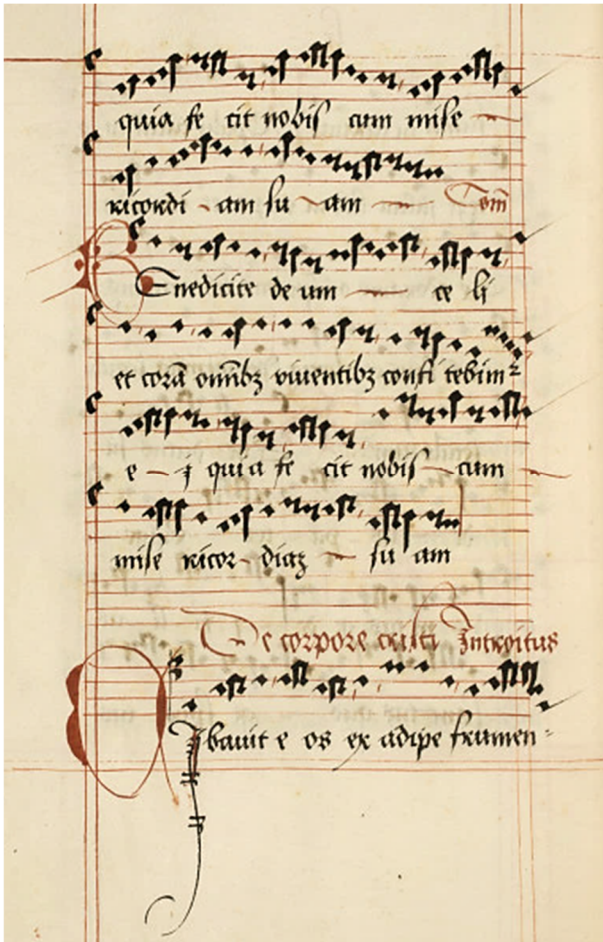 quia fe cit nobis cum mise
ricordi am su am Com̄
Benedicite de um ce li
et corā om̄ibꝫ viventibꝫ confi tebim
e j quia fe cit nobis cum
mise ricor diaꝫ su am
De corpore cristi Introitus
Cibavit e os ex adipe frumen